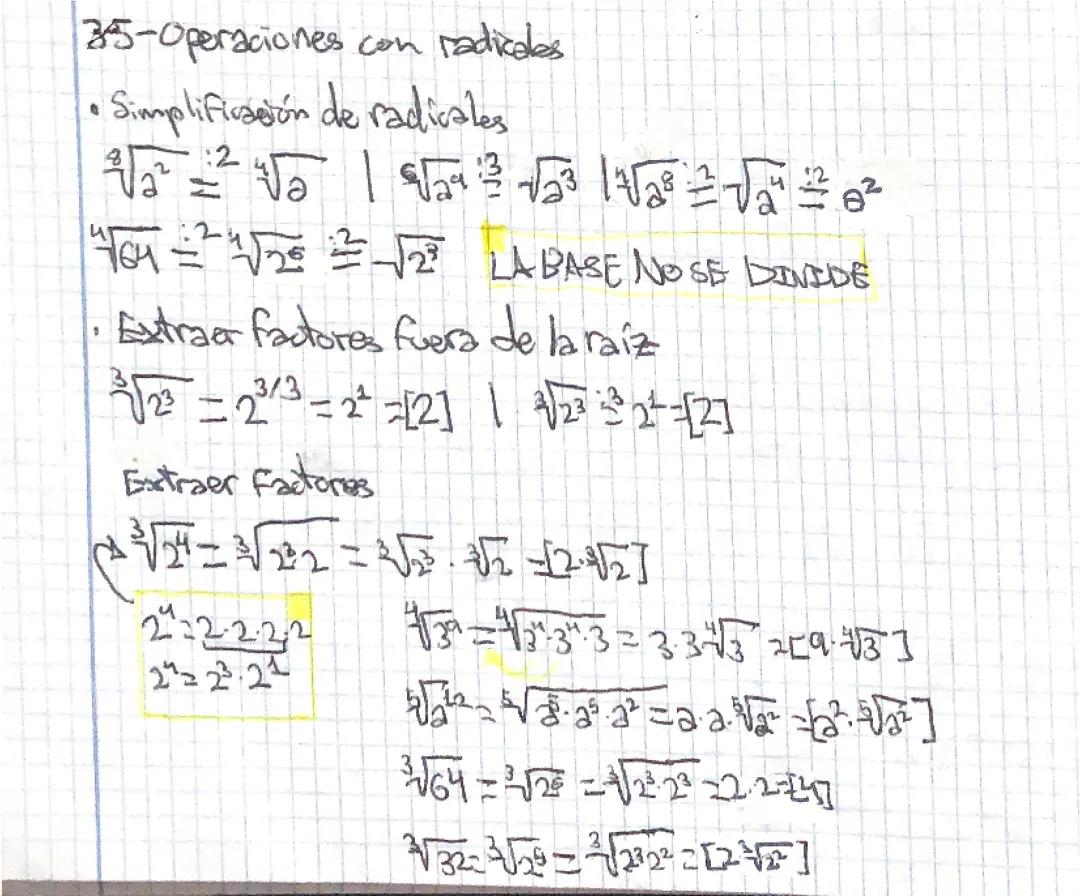 35-Operaciones con radicales
• Simplificación de radicales
⁸√a² =^{:2} ⁴√a | ⁶√a⁹ =^{:3} √a³ | ⁴√a⁸ =^{:2} √a⁴ =^{:2} a²
⁴√64 =^{:2} ⁴√2⁶ =^{:2} √2³ LA BASE NO SE DIVIDE
• Extraer factores fuera de la raíz
³√2³ = 2^{3/3} = 2¹ = [2] | ³√2³ =^{:3} 2¹ = [2]
Extraer factores
³√2⁴ = ³√2³·2 = ³√2³ · ³√2 = [2·³√2]
2⁴ = 2·2·2·2
2⁴ = 2³·2¹
⁴√3⁹ = ⁴√3⁴·3⁴·3 = 3·3·⁴√3 = [9·⁴√3]
⁵√a¹² = ⁵√a⁵·a⁵·a² = a·a·⁵√a² = [a²·⁵√a²]
³√64 = ³√2⁶ = ³√2³·2³ = 2·2 = [4]
³√32 = ³√2⁵ = ³√2³2² = [2³√2²]